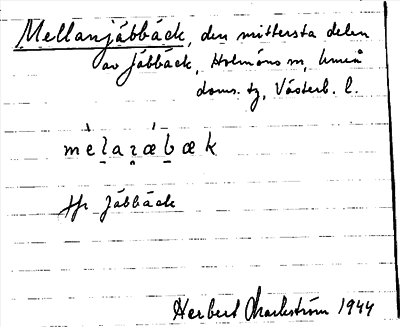 Mellanjäbbäck, den mittersta delen
av Jäbbäck, Holmöns sn, Umeå
doms. tg, Västerb. l.
mèlaʐǽbæk
Jfr Jäbbäck
Herbert Markström 1944